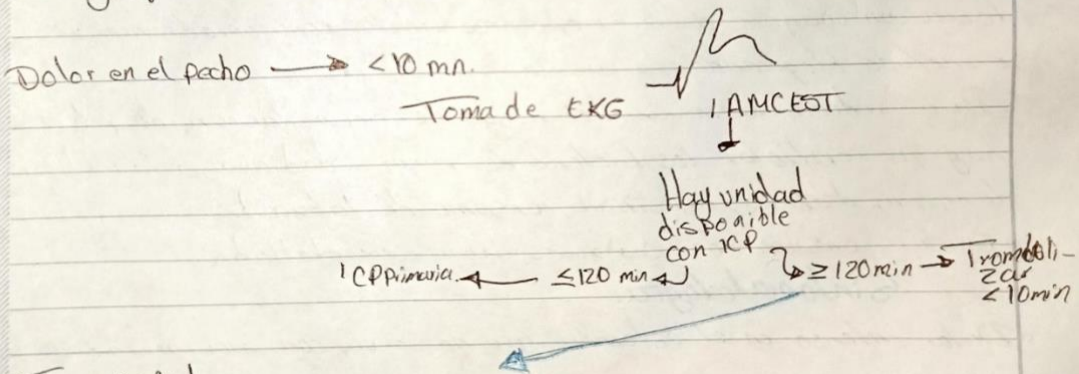 Dolor en el pecho → <10 mn.
Toma de EKG
IAMCEST
Hay unidad
disponible
con ICP
ICP Primaria ← ≤120 min
≥120 min → Tromboli-
zar
<10min